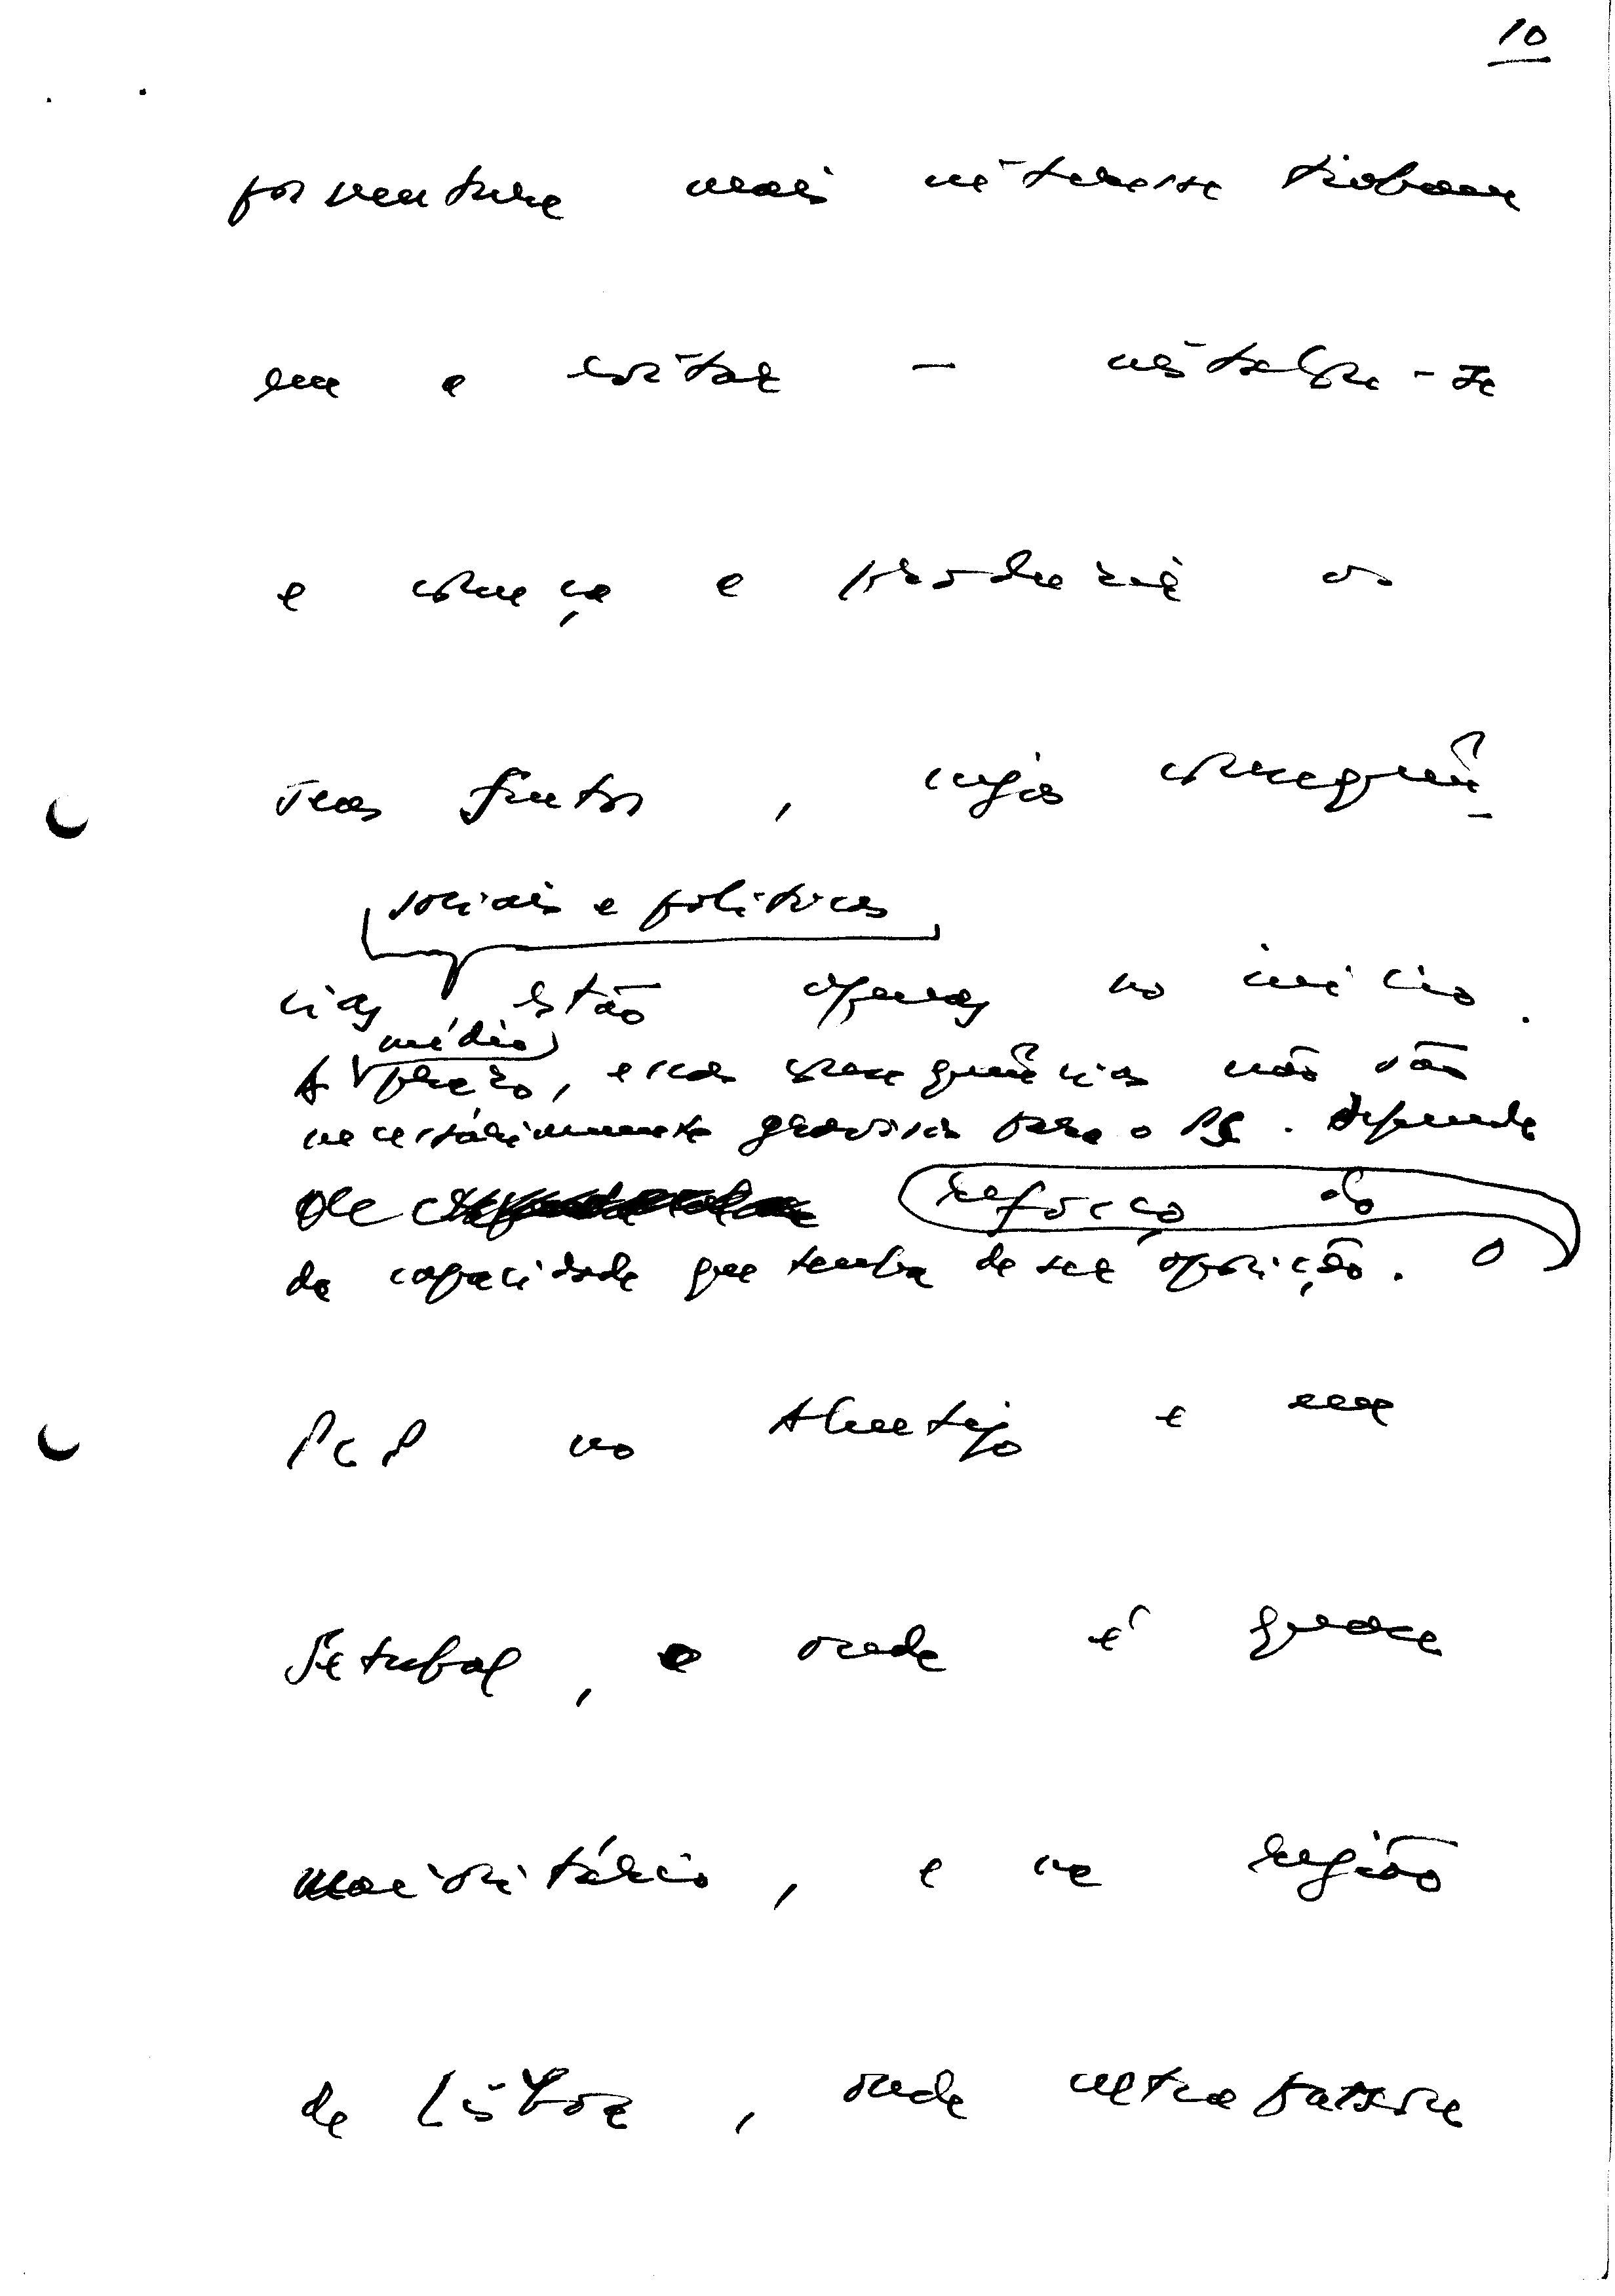 10
porventura mais interesse tinham
em a evitar - instalou-se
e começa e produzir os
seus frutos, cujas consequên-
sociais e políticas
cias estão apenas no início.
médio
A prazo, essas consequências não são
necessáriamente gravosas para o PS. Depende
de
reforço do
da capacidade que tenha de ser oposição. O
PCP no Alentejo e em
Setubal, onde é quase
maioritário, e na região
de Lisboa, onde ultrapassou